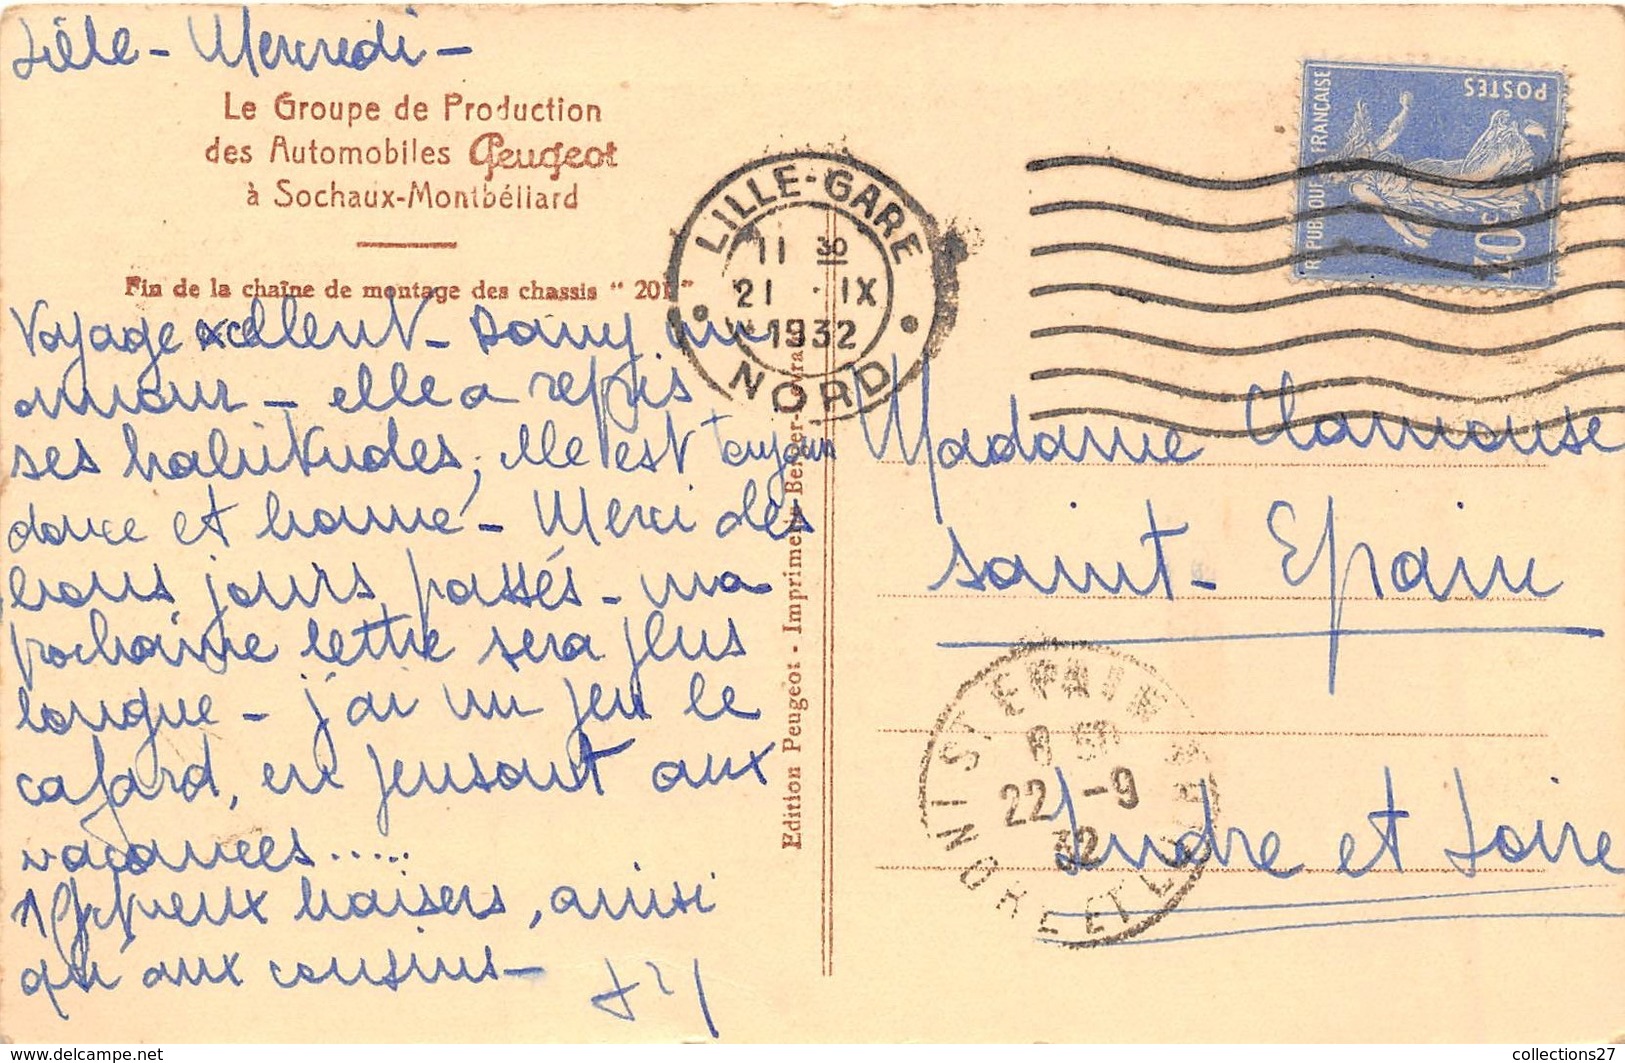 Lille - Mercredi -
Le Groupe de Production
des Automobiles Peugeot
à Sochaux-Montbéliard
Fin de la chaîne de montage des chassis " 201 "
Voyage excellent - Dany un
amour - elle a repris
ses habitudes, elle est toujours
douce et bonne - Merci des
bons jours passés - ma
prochaine lettre sera plus
longue - j'ai un peu le
cafard, en pensant aux
vacances.....
baisers, ainsi
qu'aux cousins -
Edition Peugeot - Imprimerie Berger-Levrault
LILLE-GARE
11 30
21 · IX
1932
NORD
REPUBLIQUE FRANÇAISE
POSTES
40c
Madame Clamouse
Saint-Epain
Indre et Loire
ST EPAIN
8 50
22 -9
32
INDRE ET LOIRE
delcampe.net
collections27